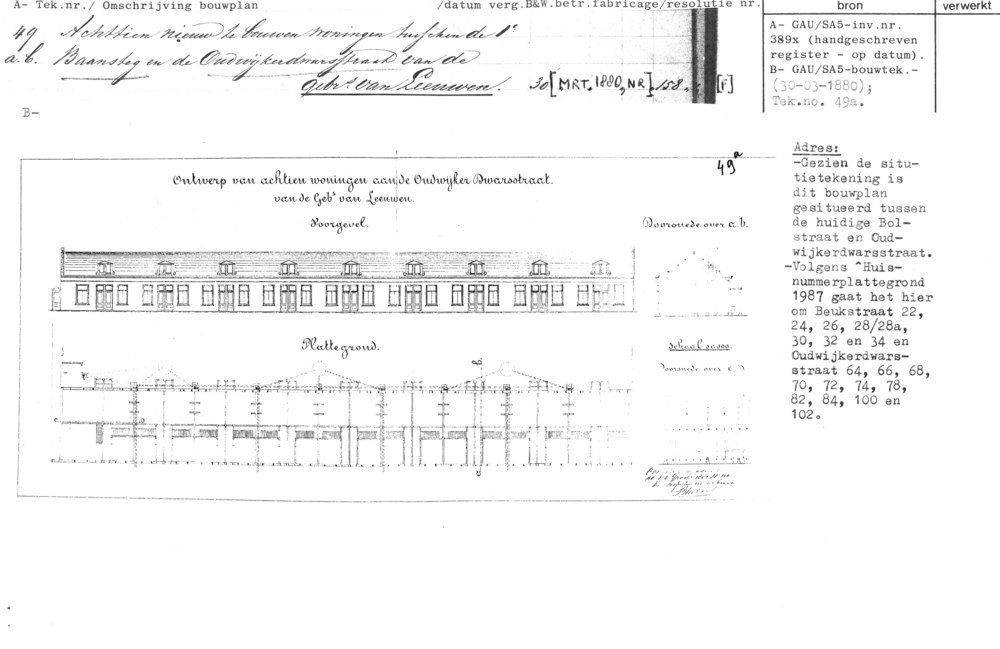 A- Tek.nr./ Omschrijving bouwplan
/datum verg.B&W.betr.fabricage/resolutie nr.
bron
verwerkt
49 Achttien nieuw te bouwen woningen tusschen de 1e
a.b. Baansteg en de Oudwijkerdwarsstraat van de
Gebrs van Leeuwen. 30 [MRT. 1880, NR]. 158. [F]
A- GAU/SA5-inv.nr.
389x (handgeschreven
register - op datum).
B- GAU/SA5-bouwtek.-
(30-03-1880);
Tek.no. 49a.
B-
49a
Ontwerp van achtien woningen aan de Oudwijker Dwarsstraat.
van de Gebs van Leeuwen.
Voorgevel.
Doorsnede over a.b.
Plattegrond.
schaal
Doorsnede over c.d.
Adres:
-Gezien de situ-
tietekening is
dit bouwplan
gesitueerd tussen
de huidige Bol-
straat en Oud-
wijkerdwarsstraat.
-Volgens ^Huis-
nummerplattegrond
1987 gaat het hier
om Beukstraat 22,
24, 26, 28/28a,
30, 32 en 34 en
Oudwijkerdwars-
straat 64, 66, 68,
70, 72, 74, 78,
82, 84, 100 en
102.